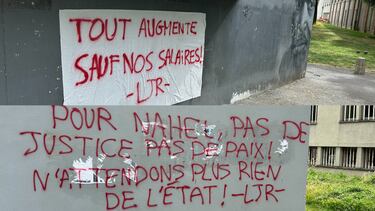 TOUT AUGMENTE
SAUF NOS SALAIRES!
-LJR-
POUR NAHEL, PAS DE
JUSTICE PAS DE PAIX!
N'ATTENDONS PLUS RIEN
DE L'ÉTAT! -LJR-